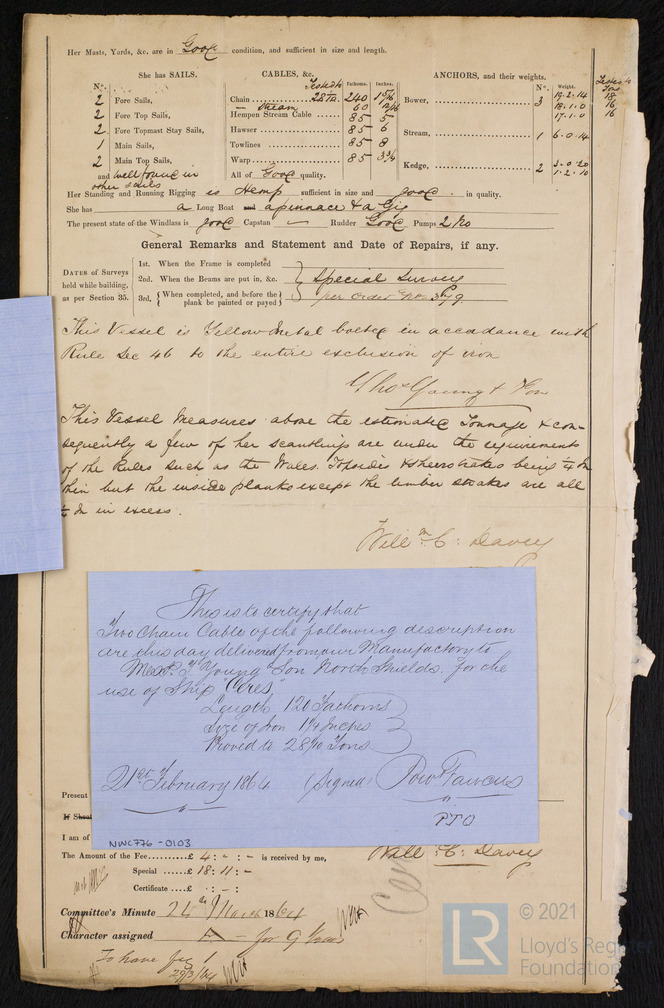 Her Masts, Yards, &c. are in Good condition, and sufficient in size and length.
She has SAILS.
CABLES, &c.
ANCHORS, and their weights.
N°.
2 Fore Sails,
2 Fore Top Sails,
2 Fore Topmast Stay Sails,
1 Main Sails,
2 Main Top Sails,
and well found in
other Sails
Tested to Fathoms. Inches.
Chain 240
Stream 60
Hempen Stream Cable 85 5
Hawser 85 6
Towlines 85 8
Warp 85 3¾
All of Good quality.
N°. Weight. Tested to Tons
Bower, 3 19.2.14 18
18.1.0 16
17.1.0 16
Stream, 1 6.0.14
Kedge, 2 3.0.20
1.2.10
Her Standing and Running Rigging is Hemp sufficient in size and good in quality.
She has a Long Boat and a pinnace & a Gig
The present state of the Windlass is good Capstan — Rudder Good Pumps 2 No
General Remarks and Statement and Date of Repairs, if any.
DATES of Surveys
held while building,
as per Section 35.
1st. When the Frame is completed
2nd. When the Beams are put in, &c.
3rd, { When completed, and before the
plank be painted or payed }
Special Survey
per order No.
This Vessel is Yellow-metal bolted in accordance with
Rule Sec 46 to the entire exclusion of iron
Thos Young & Son
This Vessel Measures above the estimated Tonnage & con-
sequently a few of her scantlings are under the requirements
of the Rules such as the Wales. Topsides & sheerstrakes being ¼ In
thin but the inside planks except the limber strakes are all
¼ In in excess.
Willm. C: Davey
This is to certify that
Two Chain Cable of the following description
are this day delivered from our Manufactory to
Messrs. T Young & Son North Shields. for the
use of Ship "Ceres,"
Length 120 Fathoms
Size of Iron 1¼ Inches
Proved to Tons
21st February 1864 (Signed) Pow & Fawcus
PTO
NWC776-0103
Present
If Sheat
I am of
The Amount of the Fee...........£ 4 : - : - is received by me,
Special ......£ 18 : 11 : -
Certificate ....£ : - :
Will: C: Davey
Committee's Minute 24th March 1864
Character assigned for 9 Years
To have fig 1
29/3/64
LR
© 2021
Lloyd's Register
Foundation